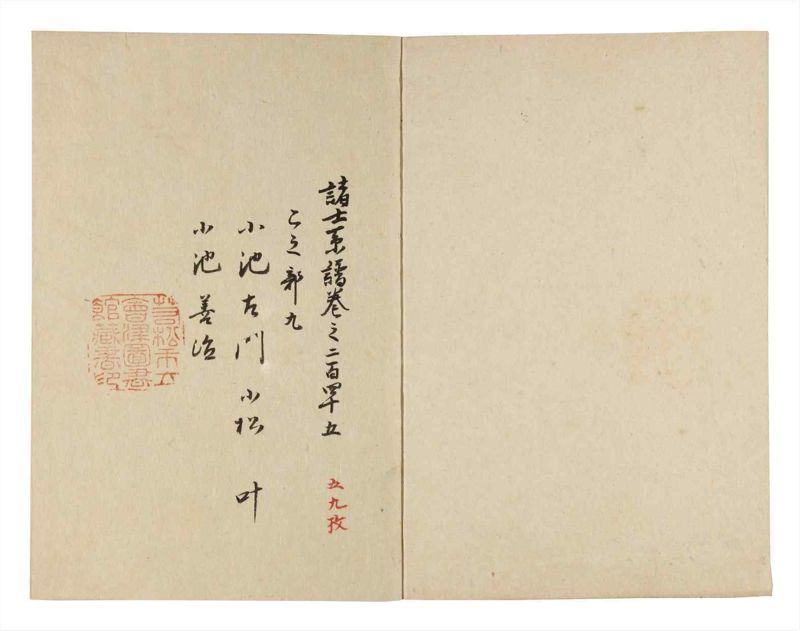 諸士系譜巻之二百四十五
五九枚
こ之部九
小池左門 小松 叶
小池善治
若松市立
會津圖書
館藏書印